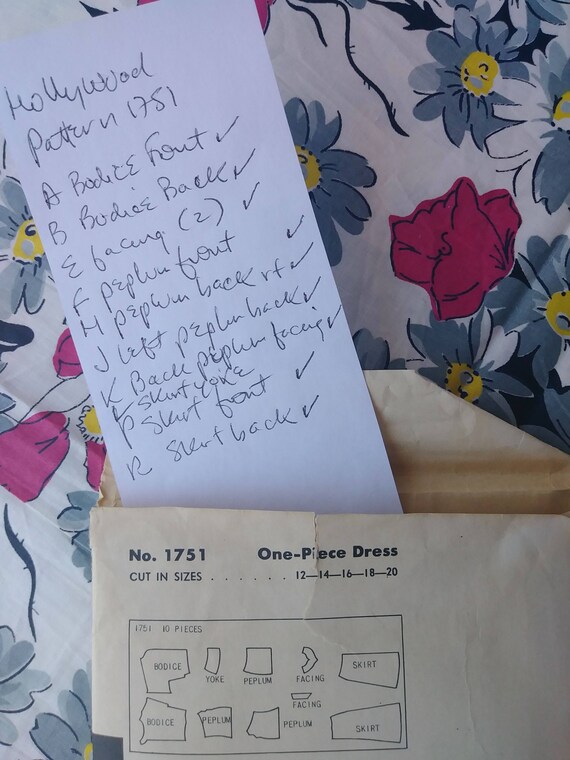 Hollywood
Pattern 1751
A Bodice Front ✓
B Bodice Back ✓
E facing (2) ✓
F peplum front ✓
H peplum back rt ✓
J left peplum back ✓
K Back peplum facing ✓
skirt yoke
P skirt front ✓
R skirt back ✓
No. 1751 One-Piece Dress
CUT IN SIZES . . . . . . 12—14—16—18—20
1751 10 PIECES
BODICE YOKE PEPLUM FACING SKIRT
FACING
BODICE PEPLUM PEPLUM SKIRT